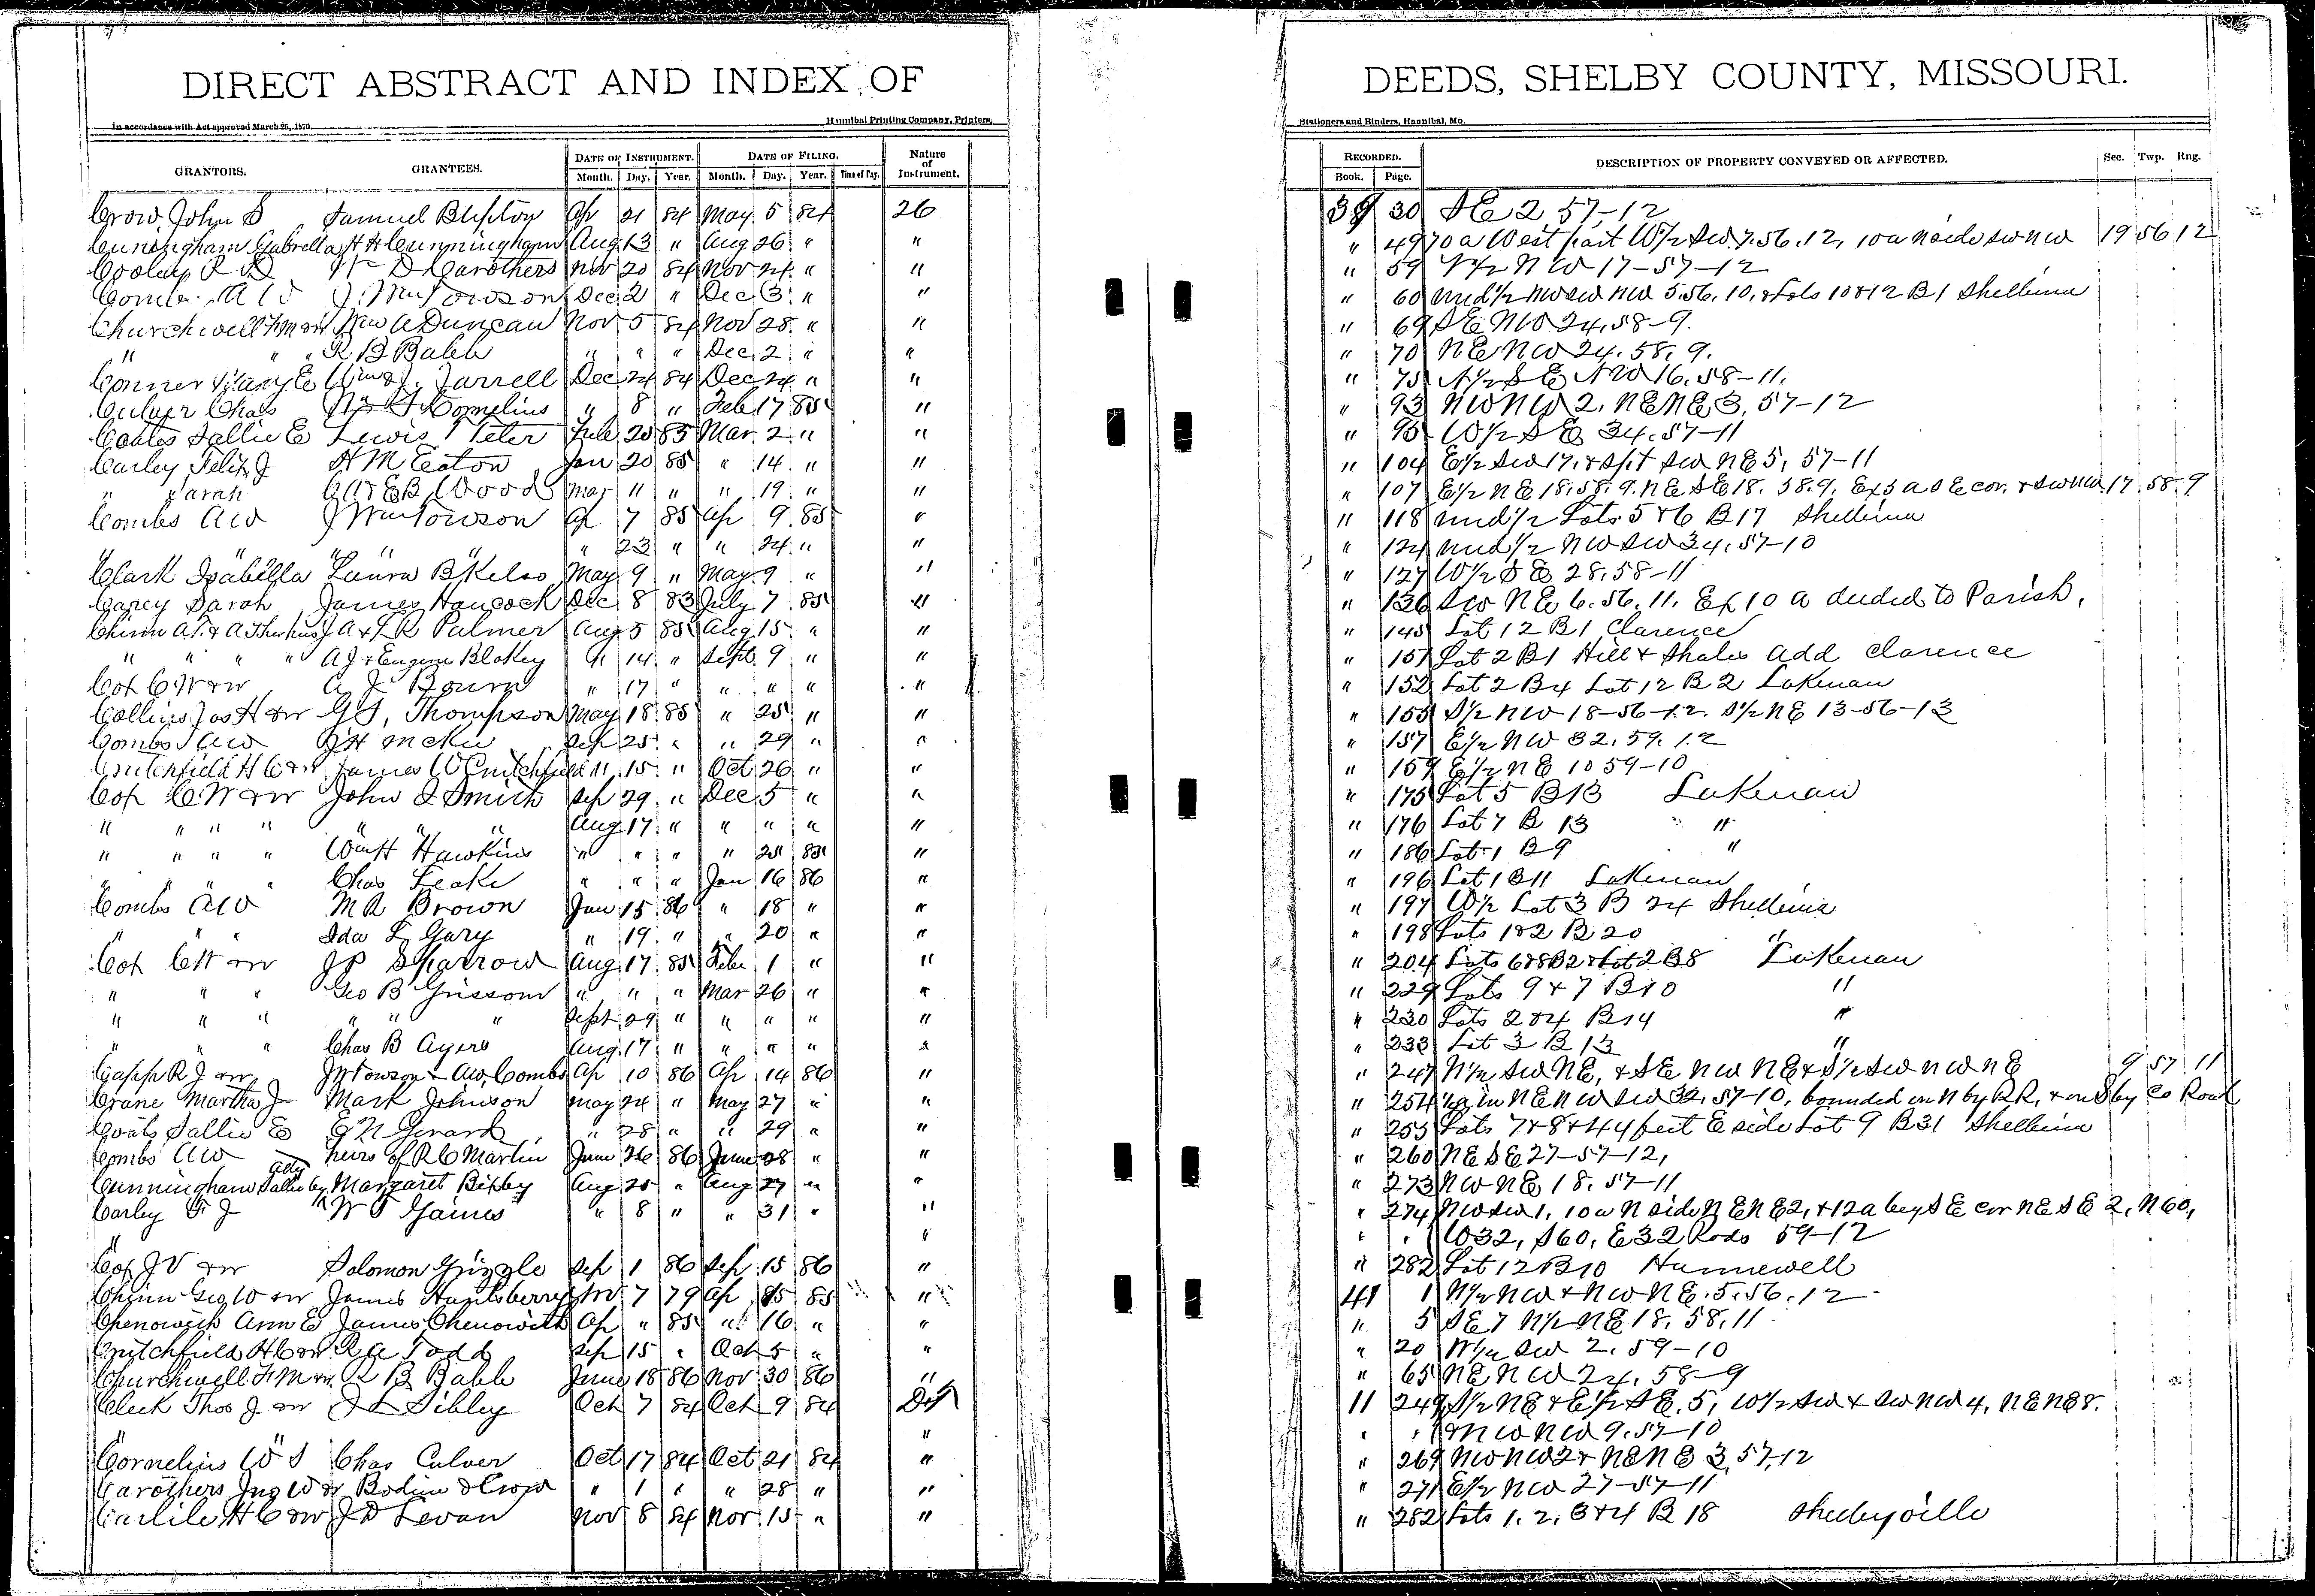 DIRECT ABSTRACT AND INDEX OF DEEDS, SHELBY COUNTY, MISSOURI.
In accordance with Act approved March 25, 1870. Hannibal Printing Company, Printers, Stationers and Binders, Hannibal, Mo.
GRANTORS. GRANTEES. DATE OF INSTRUMENT. DATE OF FILING. Nature of Instrument. RECORDED. DESCRIPTION OF PROPERTY CONVEYED OR AFFECTED. Sec. Twp. Rng.
Month. Day. Year. Month. Day. Year. Time of Day. Book. Page.
Crow John S Samuel Blifton Ap 21 84 May 5 84 26 39 30 SE 2 57-12
Cuningham Gabrella H H Cunningham Aug 13 " Aug 26 " " " 49 70 a West part W 1/2 SW 7.56.12, 10 a N side SW NW 19 56 12
Cooley R D W D Carothers Nov 20 84 Nov 24 " " " 59 N 1/2 N W 17-57-12
Combs A W J. Wm Towson Dec 2 " Dec 3 " " " 60 und 1/2 NW SW NW 5.56.10, & Lots 10 & 12 B 1 Shelbina
Churchwell F M & W Wm A Duncan Nov 5 84 Nov 28 " " " 69 SE NW 24.58-9.
" " " R B Babb " " " Dec 2 " " " 70 NE NW 24.58.9.
Conner Mary E Wm J. Jarrell Dec 24 84 Dec 24 " " " 75 N 1/2 S E NW 16.58-11.
Culver Chas W S Cornelius " 8 " Feb 17 85 " " 93 NW NW 2, NE NE 3, 57-12
Coates Sallie E Lewis Teter Feb 20 85 Mar 2 " " " 95 W 1/2 S E 34.57-11
Carley Felix J H M Eaton Jan 20 85 " 14 " " " 104 E 1/2 SW 17, & Spt SW NE 5, 57-11
" Sarah C A & E B Woods Mar 11 " " 19 " " " 107 E 1/2 NE 18.58.9. NE SE 18. 58.9. Ex 5 a S E cor. & SW NW 17 58 9
Combs A W J Wm Towson Ap 7 85 Ap 9 85 " " 118 und 1/2 Lots 5 & 6 B 17 Shelbina
" " " " " 23 " " 24 " " " 124 und 1/2 NW SW 34, 57-10
Clark Isabella Laura B Kelso May 9 " May 9 " " " 127 W 1/2 S E 28.58-11
Carey Sarah James Hancock Dec 8 83 July 7 85 " " 136 SW NE 6.56.11. Ex 10 a deeded to Parish.
Chinn A T. & A J A & L R Palmer Aug 5 85 Aug 15 " " " 145 Lot 12 B 1 Clarence
" " " " A J & Eugene Blakey " 14 " Sept 9 " " " 151 Lot 2 B 1 Hill & Shales Add Clarence
Cox C W & W A J Bourn " 17 " " " " " " 152 Lot 2 B 4 Lot 12 B 2 Lakenan
Collins Jas H & W G S. Thompson May 18 85 " 25 " " " 155 S 1/2 NW 18-56-12. S 1/2 NE 13-56-13
Combs A W J H McKee Sep 25 " " 29 " " " 157 E 1/2 NW 32.59.12
Crutchfield H C & W James W Crutchfield " 15 " Oct 26 " " " 159 E 1/2 NE 10 59-10
Cox C W & W John S Smith Sep 29 " Dec 5 " " " 175 Lot 5 B 13 Lakenan
" " " " " " " Aug 17 " " " " " " 176 Lot 7 B 13 "
" " " " Wm H Hawkins " " " " 25 85 " " 186 Lot 1 B 9 "
" " " " Chas Leake " " " Jan 16 86 " " 196 Lot 1 B 11 Lakenan
Combs A W M R Brown Jan 15 86 " 18 " " " 197 W 1/2 Lot 3 B 24 Shelbina
" " " Ida L Gary " 19 " " 20 " " " 198 Lots 1 & 2 B 20 "
Cox C W & W J P Sparrow Aug 17 85 Feb 1 " " " 204 Lots 6 & 8 B 2 & Lot 2 B 8 Lakenan
" " " Geo B Grissom " " " Mar 26 " " " 229 Lots 9 & 7 B 10 "
" " " " " " Sept 29 " " " " " " 230 Lots 2 & 4 B 14 "
" " " Chas B Ayers Aug 17 " " " " " " 233 Lot 3 B 13 "
Capp R J & W J W Towson & A W Combs Ap 10 86 Ap 14 86 " " 247 N 1/2 SW NE, & SE NW NE & S 1/2 SW NW NE 9 57 11
Crane Martha J Mark Johnson May 24 " May 27 " " " 254 in NE NW SW 32, 57-10, bounded on N by RR, & on S by Co Road
Coats Sallie E E N Gerard " 28 " " 29 " " " 255 Lots 7 & 8 & 44 feet E side Lot 9 B 31 Shelbina
Combs A W heirs of R C Martin June 26 86 June 28 " " " 260 NE SE 27-57-12,
Cunningham Sallie by adm Margaret Bixby Aug 25 " Aug 27 " " " 273 NW NE 18, 57-11
Carley F J W T Gaines " 8 " " 31 " " " 274 NW SW 1, 10 a N side NE NE 2, & 12 a beg S E cor NE SE 2, N 60,
" " " " W 32, S 60, E 32 Rods 59-12
Cox J V & W Solomon Grizzle Sep 1 86 Sep 15 86 " " 282 Lot 12 B 10 Hunnewell
Chinn Geo W & W James Huntsberry Nov 7 79 Ap 15 85 " 41 1 N 1/2 NW & NW NE. 5.56.12
Chenowith Ann E James Chenowith Ap " 85 " 16 " " " 5 SE 7 N 1/2 NE 18, 58.11
Crutchfield H C & W R A Todd Sep 15 " Oct 5 " " " 20 SW 2.59-10
Churchwell F M & W R B Babb June 18 86 Nov 30 86 " " 65 NE NW 24.58-9
Cleek Thos J & W J L Sibley Oct 7 84 Oct 9 84 DT 11 249 S 1/2 NE & E 1/2 SE. 5, W 1/2 SW & SW NW 4, NE NE 8.
" " " " " & NW NW 9.57-10
Cornelius W S Chas Culver Oct 17 84 Oct 21 84 " " 269 NW NW 2 & NE NE 3, 57-12
Carothers Jno W & W Bodine & Crow " 1 " " 28 " " " 271 E 1/2 NW 27-57-11
Carlile H C & W J D Levan Nov 8 84 Nov 15 " " " 282 Lots 1, 2, 3 & 4 B 18 Shelbyville